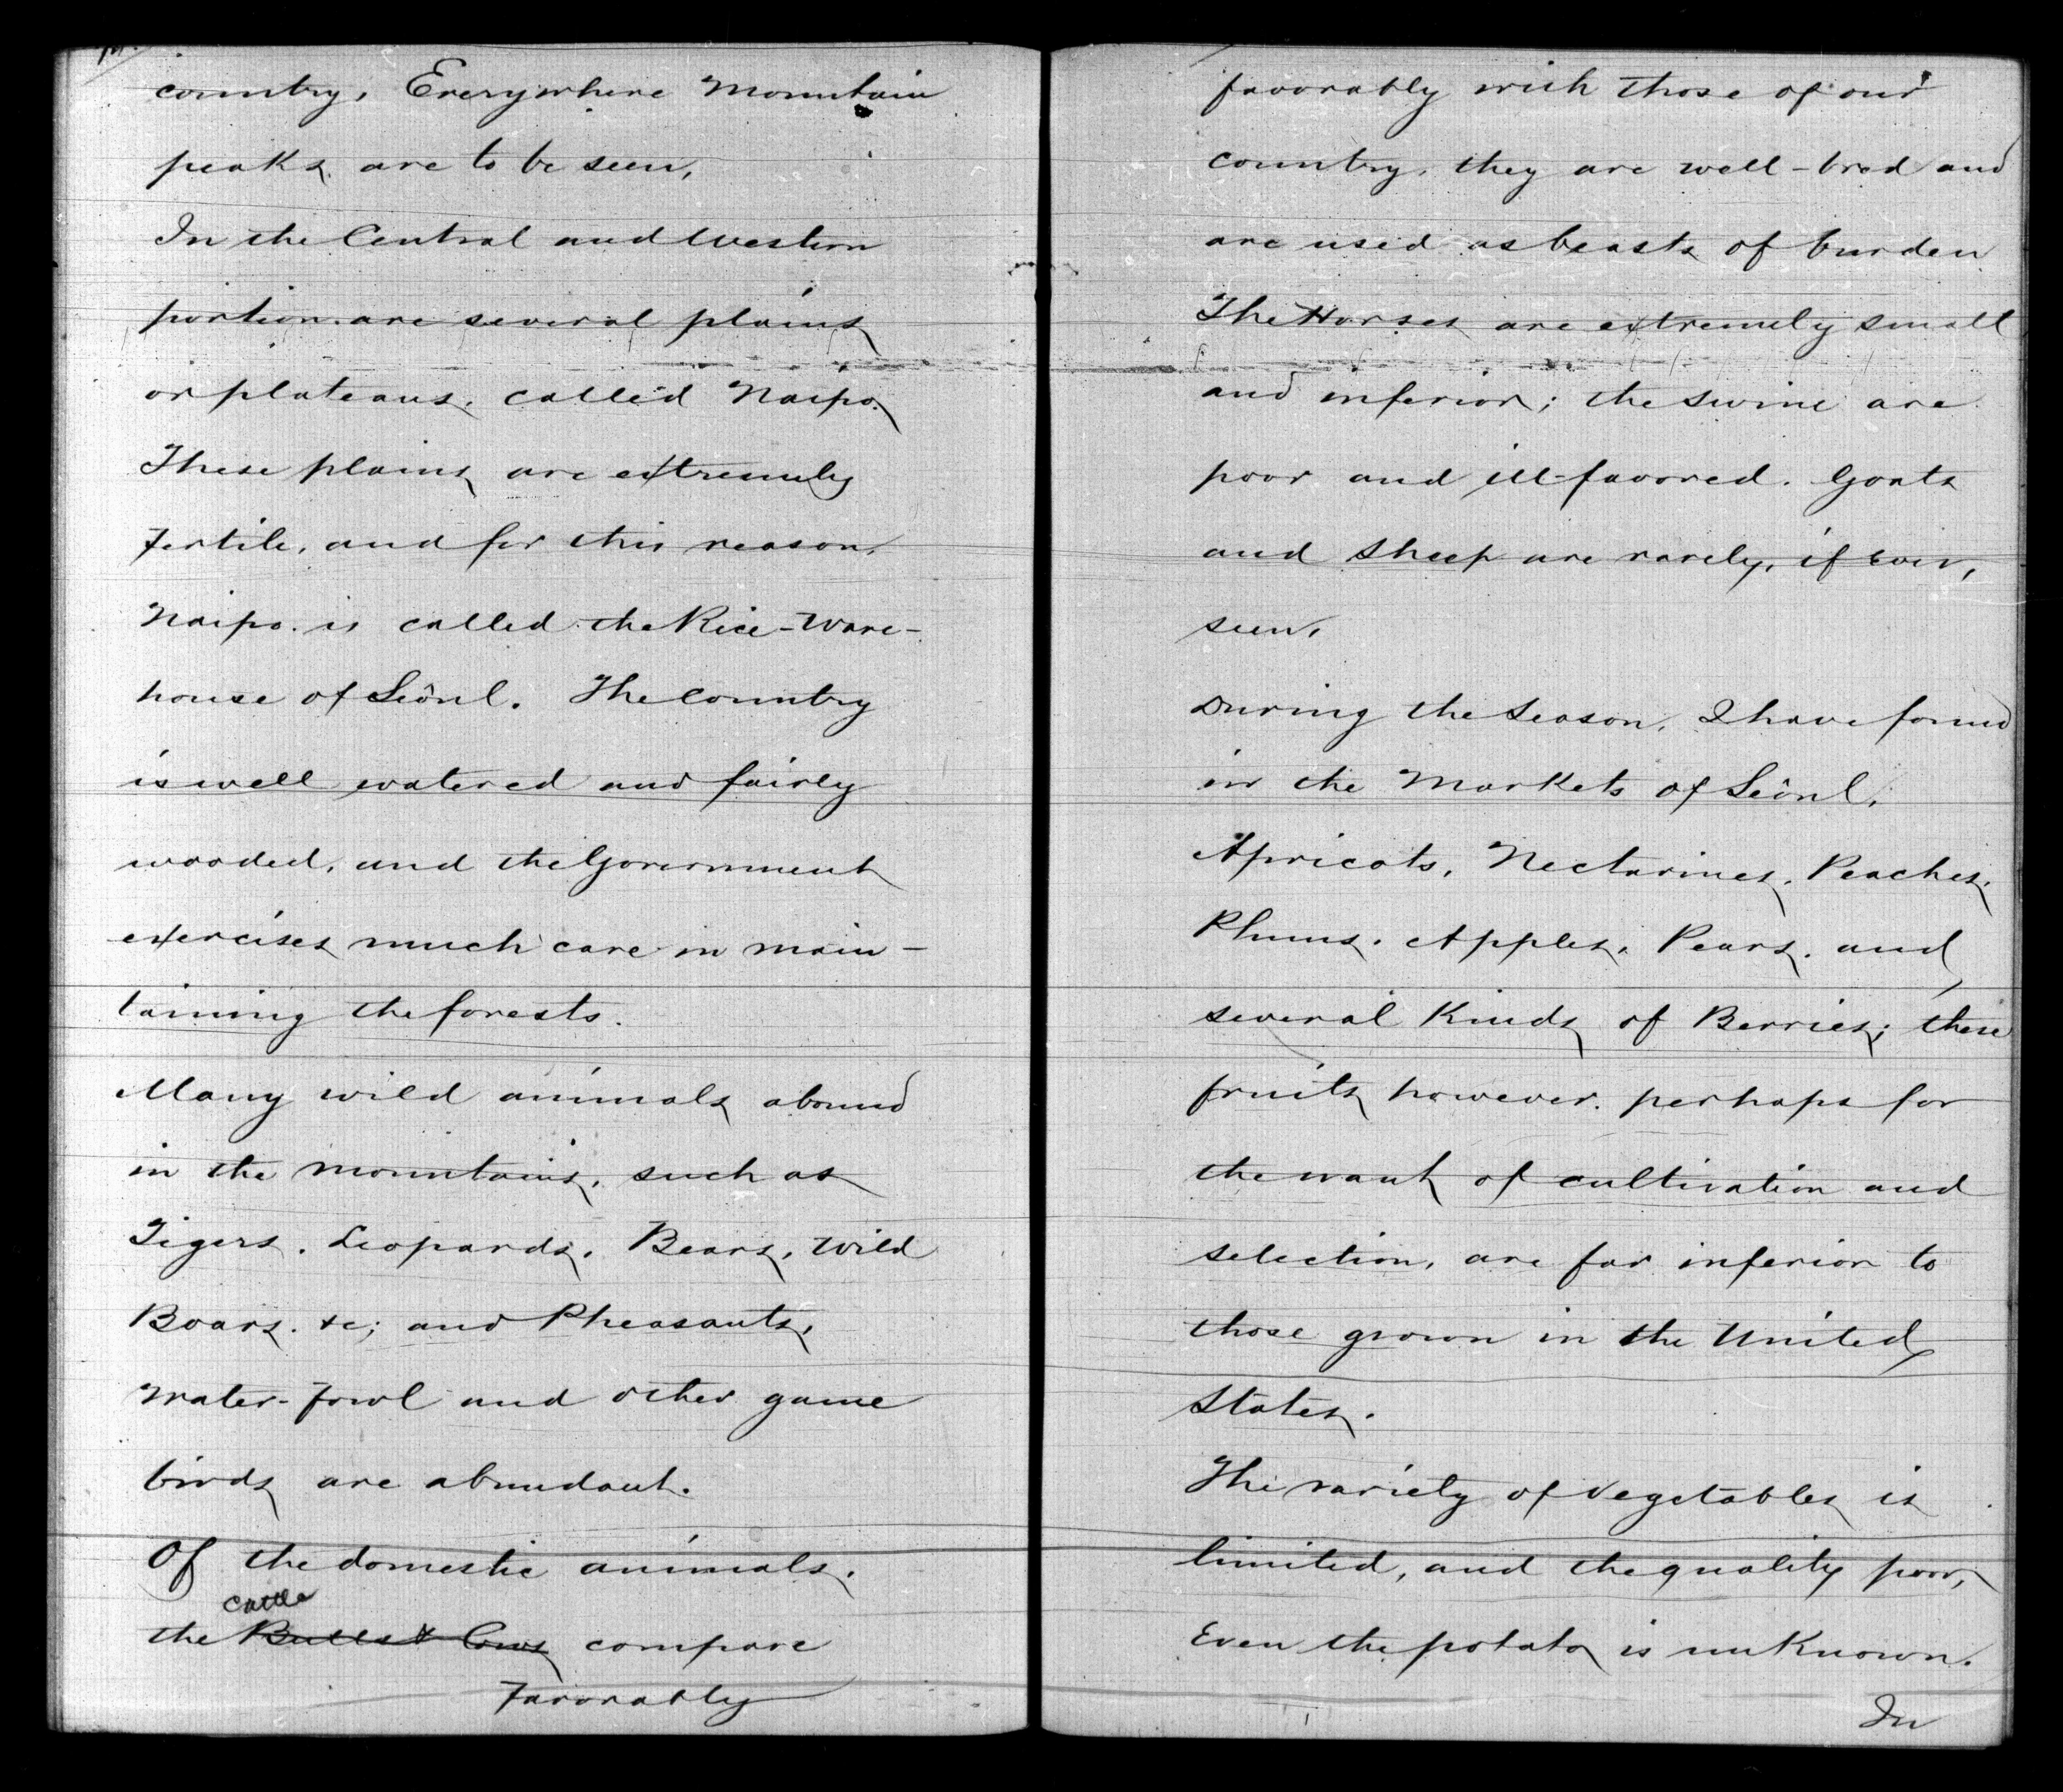 country, Everywhere Mountain
peaks are to be seen,
In the Central and Western
portion are several plains
or plateaus, called Naipo.
These plains are extremely
fertile, and for this reason,
Naipo is called the Rice-Ware-
house of Seôul. The Country
is well watered and fairly
wooded, and the Government
exercises much care in main-
taining the forests.
Many wild animals abound
in the mountains, such as
Tigers, Leopards, Bears, Wild
Boars, &c; and Pheasants,
Water-fowl and other game
birds are abundant.
Of the domestic animals,
cattle
the Bulls & Cows compare
favorably
favorably with those of our
country, they are well-bred and
are used as beasts of burden
The Horses are extremely small
and inferior; the swine are
poor and ill-favored. Goats
and Sheep are rarely, if ever,
seen.
During the Season, I have found
in the Markets of Seôul,
Apricots, Nectarines, Peaches,
Plums, Apples, Pears, and
several Kinds of Berries; these
fruits however, perhaps for
the want of cultivation and
selection, are far inferior to
those grown in the United
States.
The variety of Vegetables is
limited, and the quality poor,
Even the potato is unknown.
In